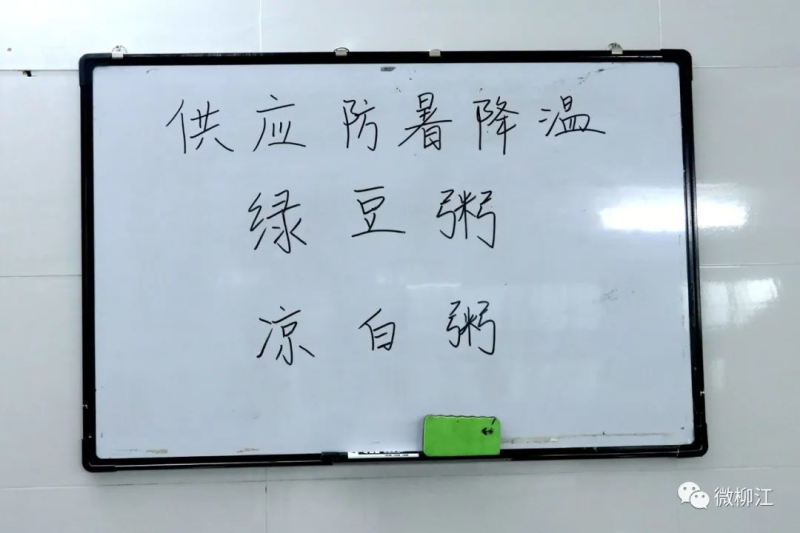 供应防暑降温
绿豆粥
凉白粥
微柳江